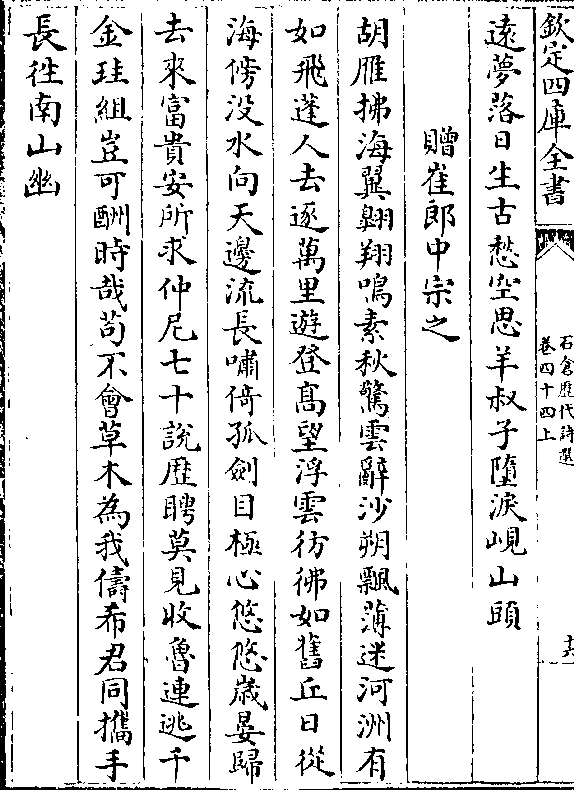 欽定四庫全書
石倉歷代詩選
卷四十四上
十六
遠夢落日生古愁空思羊叔子墮淚峴山頭
贈崔郎中宗之
胡雁拂海翼翺翔鳴素秋驚雲辭沙朔飄薄迷河洲有
如飛蓬人去逐萬里遊登髙望浮雲彷彿如舊丘日從
海傍没水向天邊流長嘯倚孤劍目極心悠悠歲晏歸
去來富貴安所求仲尼七十説歴聘莫見收魯連逃千
金珪組豈可酬時哉茍不會草木為我儔希君同攜手
長往南山幽